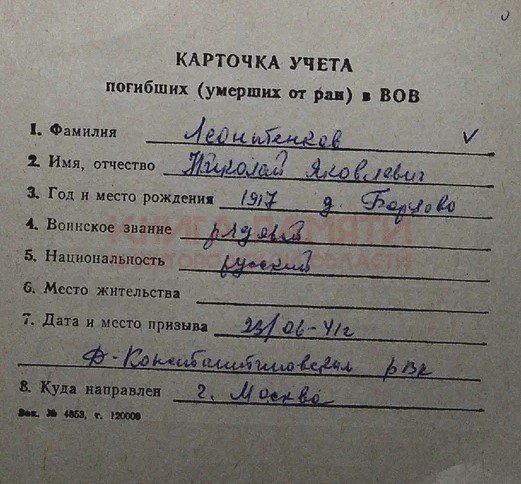 КАРТОЧКА УЧЕТА
погибших (умерших от ран) в ВОВ
1. Фамилия Леонтенков
2. Имя, отчество Николай Яковлевич
3. Год и место рождения 1917 д.
КНИГА ПАМЯТИ
4. Воинское звание рядовой
5. Национальность русский
6. Место жительства
7. Дата и место призыва 23/06-41г
Д-Константиновским РВК
8. Куда направлен г. Москва
Зак. № 4853, т. 120000